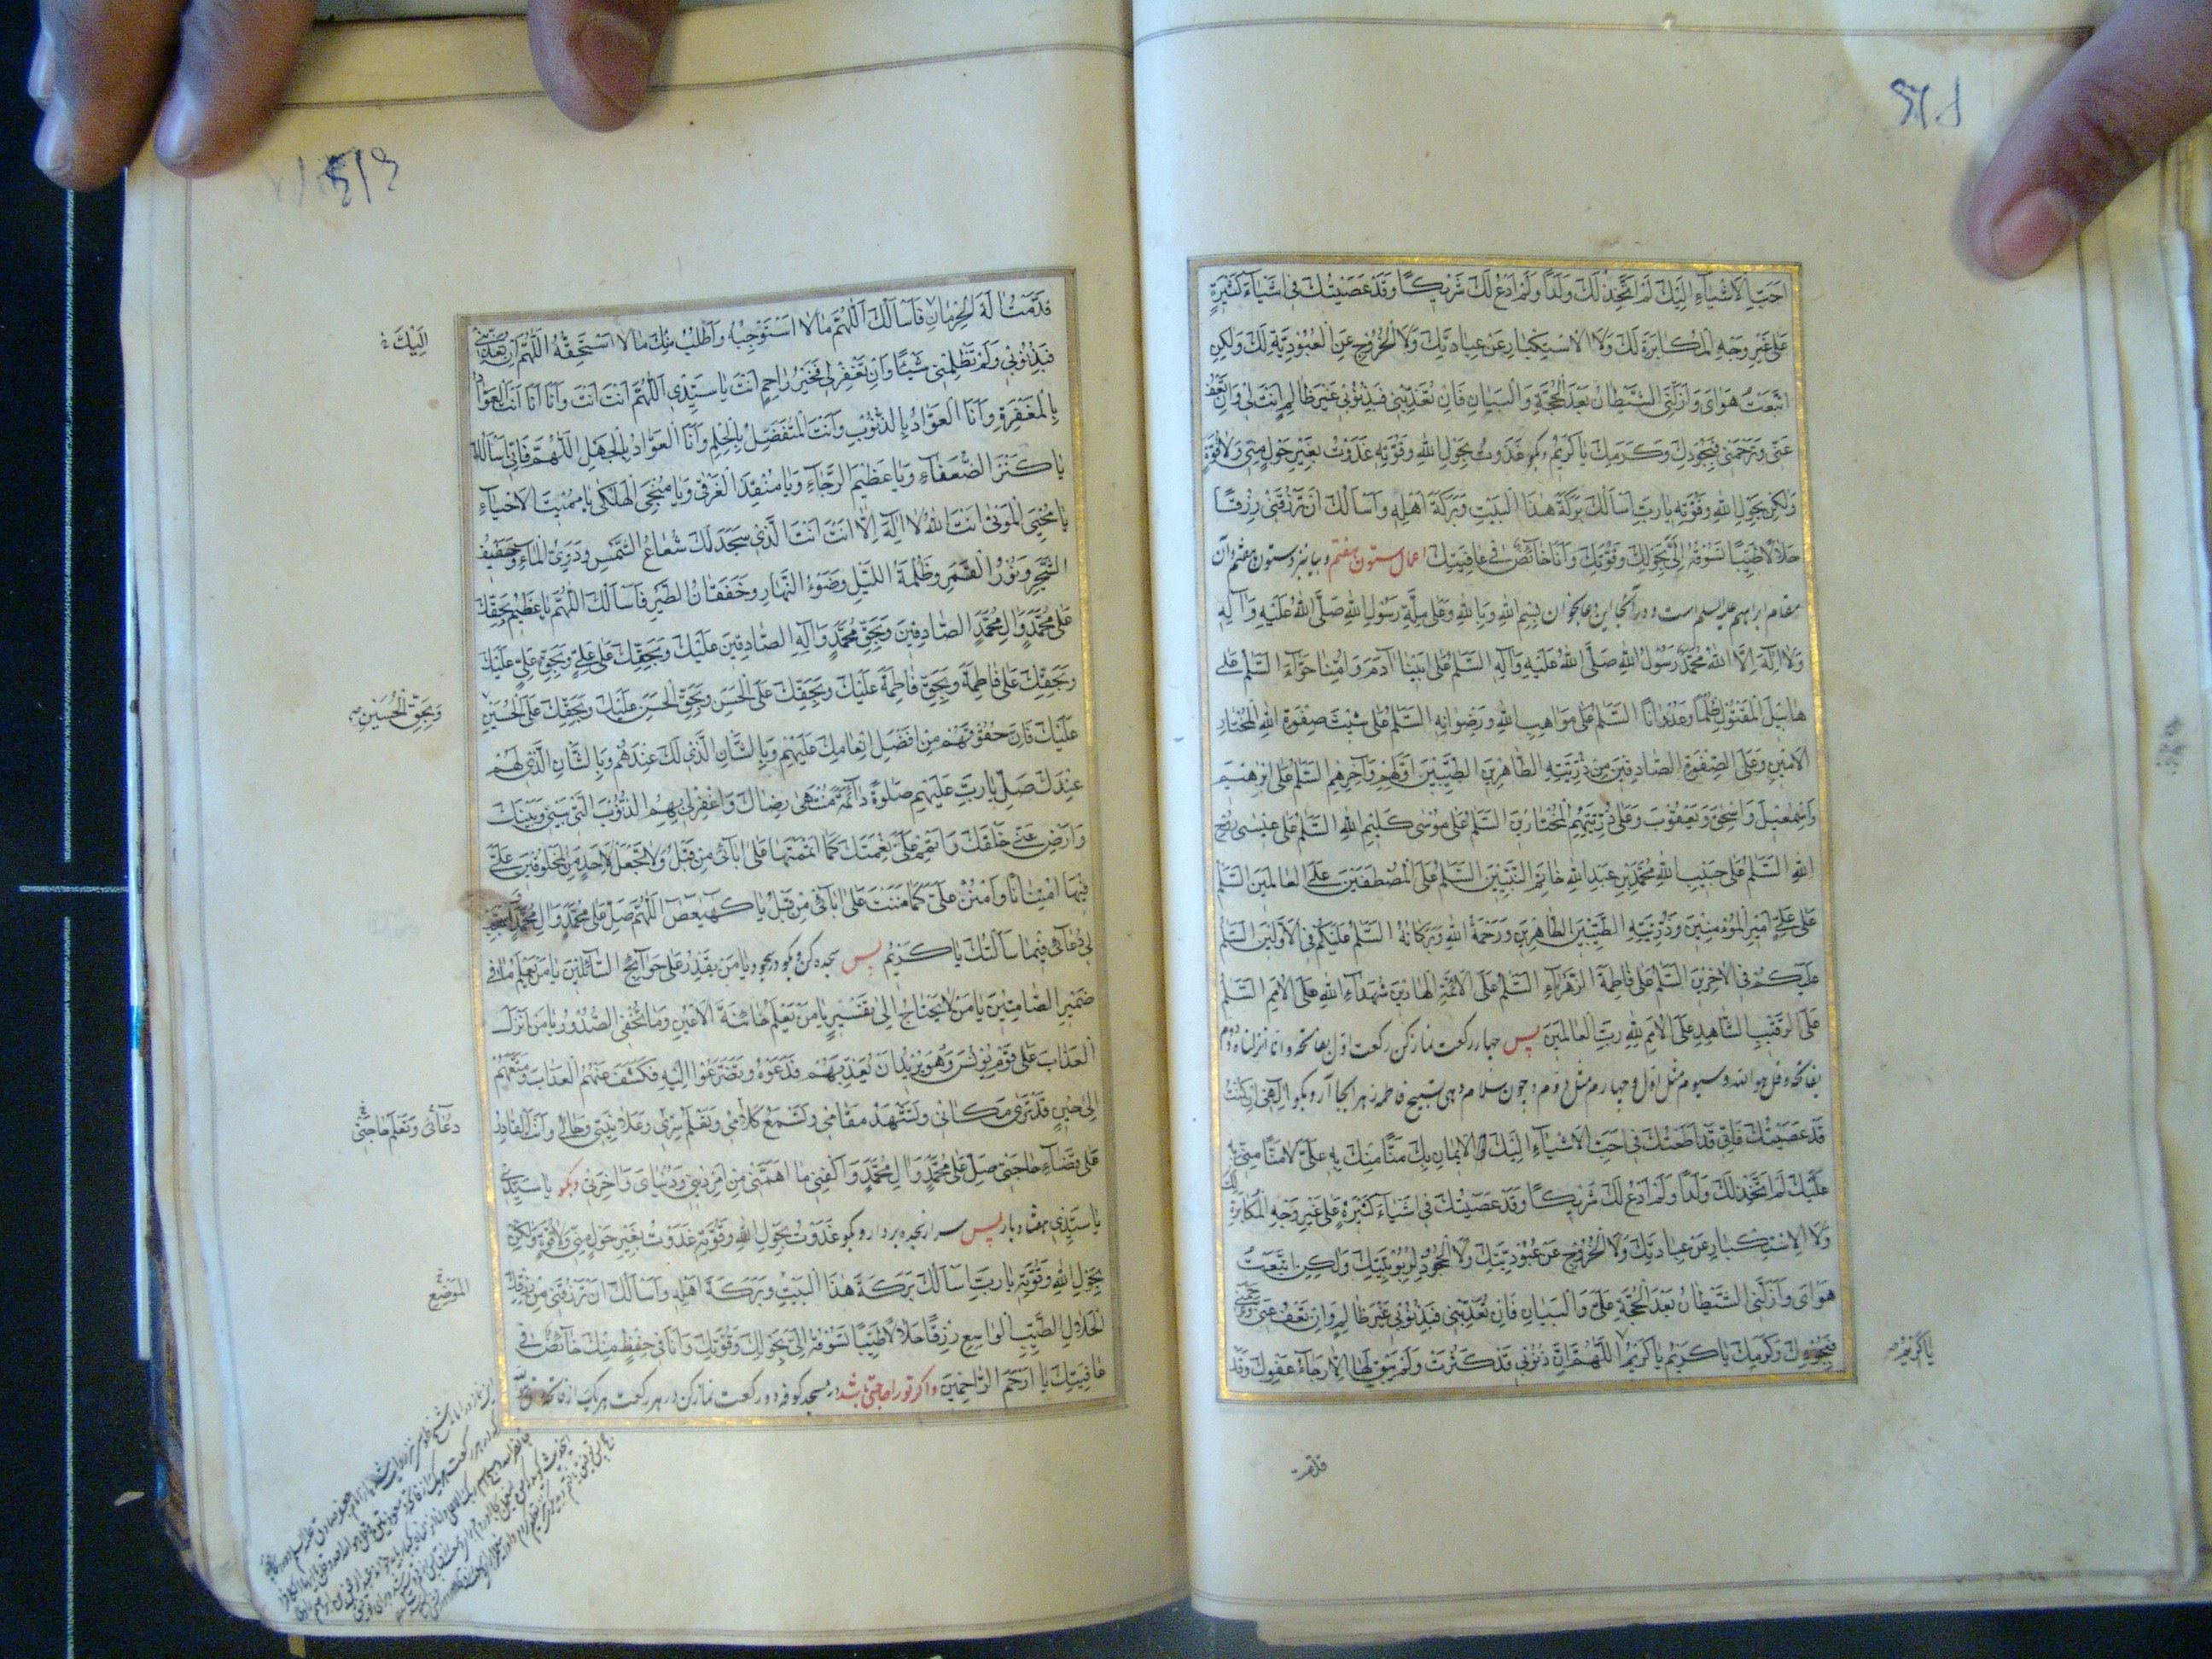 احب الاشياء اليك لم اتخذ لك ولدا ولم ادع لك شريكا وقد عصيتك في اشياء كثيرة
على غير وجه المكابرة لك ولا الاستكبار عن عبادتك ولا الخروج عن العبودية لك ولكن
اتبعت هواى وازلني الشيطان بعد الحجة والبيان فان تعذبني فبذنوبي غير ظالم انت لي وان تعف
عني وترحمني فبجودك وكرمك يا كريم وبكو غدوت بحول الله وقوته غدوت بغير حول مني ولا قوة
ولكن بحول الله وقوته يا رب اسألك بركة هذا البيت وبركة اهله واسألك ان ترزقني رزقا
حلالا طيبا تسوقه الي بحولك وقوتك وانا خائض في عافيتك اعمال ستون هفتم وبيا نزد ستون هفتم وآن
مقام ابراهيم عليه السلم است ودر آنجا اين دعا بخوان بسم الله وبالله وعلى ملة رسول الله صلى الله عليه وآله
ولا اله الا الله محمد رسول الله صلى الله عليه وآله السلم على ابينا آدم وامنا حواء السلم على
هابيل المقتول ظلما وعدوانا السلم على مواهب الله ورضوانه السلم على شيث صفوة الله المختار
الامين وعلى الصفوة الصادقين من ذريته الطاهرين الطيبين اولهم وآخرهم السلم على ابرهيم
واسمعيل واسحق ويعقوب وعلى ذريتهم المختارين السلم على موسى كليم الله السلم على عيسى روح
الله السلم على حبيب الله محمد بن عبد الله خاتم النبيين السلم على المصطفين على العالمين السلم
على علي امير المؤمنين وذريته الطيبين الطاهرين ورحمة الله وبركاته السلم عليكم في الاولين السلم
عليكم في الاخرين السلم على فاطمة الزهراء السلم على الائمة الهادين شهداء الله على الامم السلم
على الرقيب الشاهد على الامم لله رب العالمين پس چهار ركعت نماز كن ركعت اول بفاتحه وانا انزلناه ودوم
بفاتحه وقل هو الله وسيوم مثل اول وچهارم مثل دوم وچون سلام دهى تسبيح فاطمه زهرا بجا آر وبكو الهي ان كنت
قد عصيتك فاني قد اطعتك في احب الاشياء اليك الايمان بك منا منك به علي لا منا مني به
عليك لم اتخذ لك ولدا ولم ادع لك شريكا وقد عصيتك في اشياء كثيرة على غير وجه المكابرة لك
ولا الاستكبار عن عبادتك ولا الخروج عن عبوديتك ولا الجحود لربوبيتك ولكن اتبعت
هواى وازلني الشيطان بعد الحجة علي والبيان فان تعذبني فبذنوبي غير ظالم وان تعف عني وترحمني
فبجودك وكرمك يا كريم يا كريم اللهم ان ذنوبي قد كثرت ولم يبق لها الا رجاء عفوك وقد
يا كريم
قدمت
قدمت الة الحرمان فاسألك اللهم ما لا استوجبه واطلب منك ما لا استحقه اللهم ان تعذبني
اليك
فبذنوبي ولم تظلمني شيئا وان تغفر لي فخير راحم انت يا سيدي اللهم انت انت وانا انا انت العواد
بالمغفرة وانا العواد بالذنوب وانت المتفضل بالحلم وانا العواد بالجهل اللهم فاني اسألك
يا كنز الضعفاء ويا عظيم الرجاء ويا منقذ الغرقى ويا منجي الهلكى يا مميت الاحياء
يا محيي الموتى انت الله لا اله الا انت انت الذي سجد لك شعاع الشمس ودوي الماء وحفيف
الشجر ونور القمر وظلمة الليل وضوء النهار وخفقان الطير فاسألك اللهم يا عظيم بحقك
على محمد وال محمد الصادقين وبحق محمد وآله الصادقين عليك وبحقك على علي وبحق علي عليك
وبحقك على فاطمة وبحق فاطمة عليك وبحقك على الحسن وبحق الحسن عليك وبحقك على الحسين
وبحق الحسين
عليك فان حقوقهم من افضل انعامك عليهم وبالشان الذي لك عندهم وبالشان الذي لهم
عندك صل يا رب عليهم صلوة دائمة منتهى رضاك واغفر لي بهم الذنوب التي بيني وبينك
وارض عني خلقك واتمم علي نعمتك كما اتممتها على آبائي من قبل ولا تجعل لاحد من المخلوقين علي
فيها امتنانا وامنن علي كما مننت على آبائي من قبل يا كهيعص اللهم صل على محمد وال محمد واستجب
لي دعائي فيما سألتك يا كريم پس سجده كن وبكو در سجود يا من يقدر على حوائج السائلين يا من يعلم ما في
ضمير الصامتين يا من لا يحتاج الى تفسير يا من يعلم خائنة الاعين وما تخفي الصدور يا من انزل
العذاب على قوم يونس وهو يريد ان يعذبهم فدعوه وتضرعوا اليه فكشف عنهم العذاب ومتعهم
الى حين قد ترى مكاني وتشهد مقامي وتسمع كلامي وتعلم سري وعلانيتي وحالي وانت القادر
دعائي وتعلم حاجتي
على قضاء حاجتي صل على محمد وال محمد واكفني ما اهمني من امر ديني ودنياى وآخرتي وبكو يا سيدي
يا سيدي هفتاد بار پس سر از سجده بردار وبكو غدوت بحول الله وقوته غدوت بغير حول مني ولا قوة ولكن
بحول الله وقوته يا رب اسألك بركة هذا البيت وبركة اهله واسألك ان ترزقني من رزقك
الموضع
الحلال الطيب الواسع رزقا حلالا طيبا تسوقه الي بحولك وقوتك وانا في حفظ منك خائض في
عافيتك يا ارحم الراحمين واكر تو را حاجتى باشد در مسجد كوفه دو ركعت نماز كن در هر ركعت هر يك از فاتحه